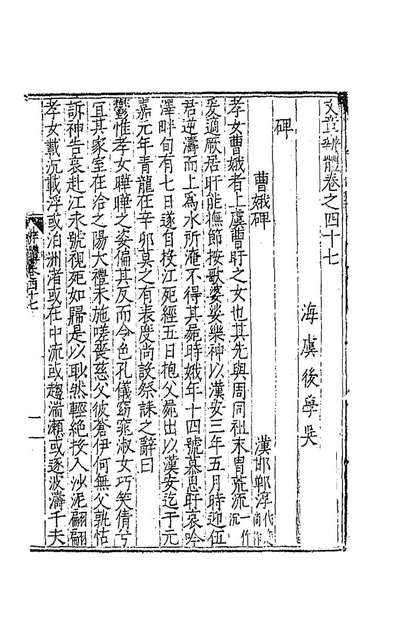 文章辨體卷之四十七
海虞後學吳
碑
曹娥碑
漢邯鄲淳
孝女曹娥者上虞曹盱之女也其先與周同祖末胄荒流
爰適厥居盱能撫節按歌婆娑樂神以漢安二年五月時迎伍
君逆濤而上為水所淹不得其屍時娥年十四號慕思盱哀吟
澤畔旬有七日遂自投江死經五日抱父屍出以漢安迄于元
嘉元年青龍在辛卯莫之有表度尚設祭誄之辭曰
鬱惟孝女曄曄之姿偏其反而令色孔儀窈窕淑女巧笑倩兮
宜其家室在洽之陽大禮未施嗟喪慈父彼蒼伊何無父孰怙
訴神告哀赴江永號視死如歸是以耿然輕絕投入沙泥翩翩
孝女載沉載浮或泊洲渚或在中流或趨湍瀨或逐波濤千夫
辨體卷四十七
一